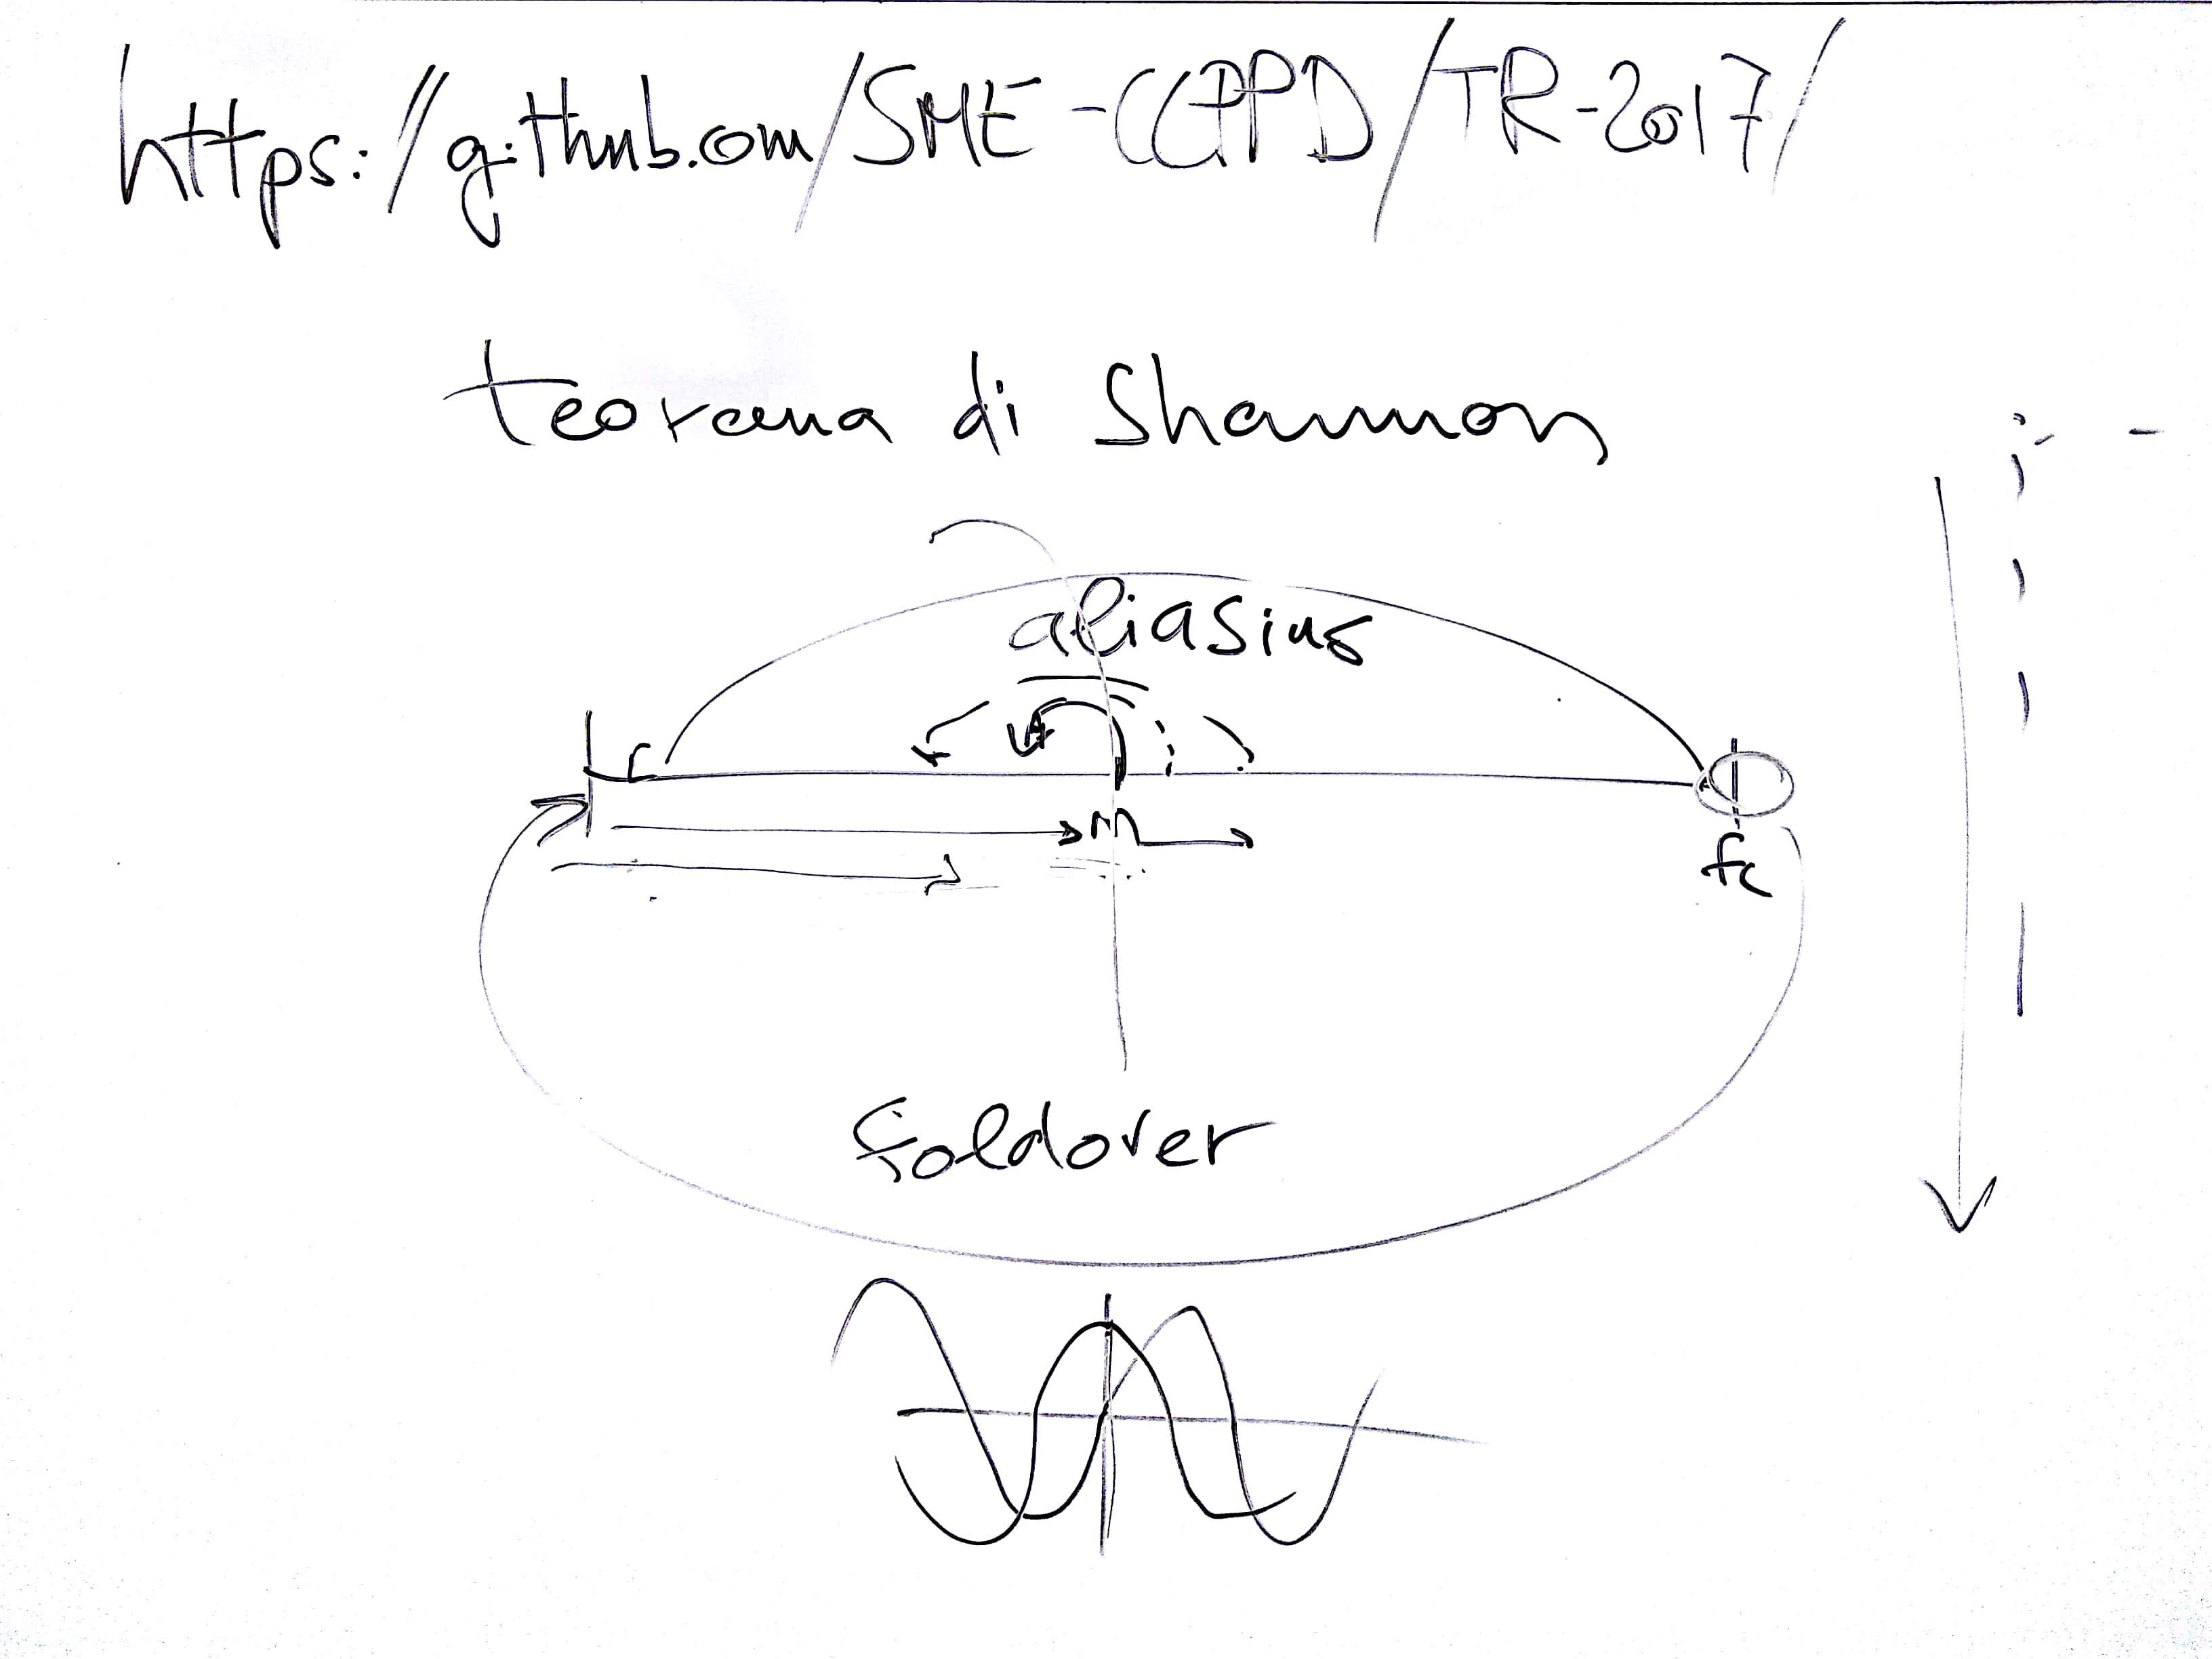 https://github.com/SME-CCPPD/TR-2017/
teorema di Shannon
aliasing
fc
foldover